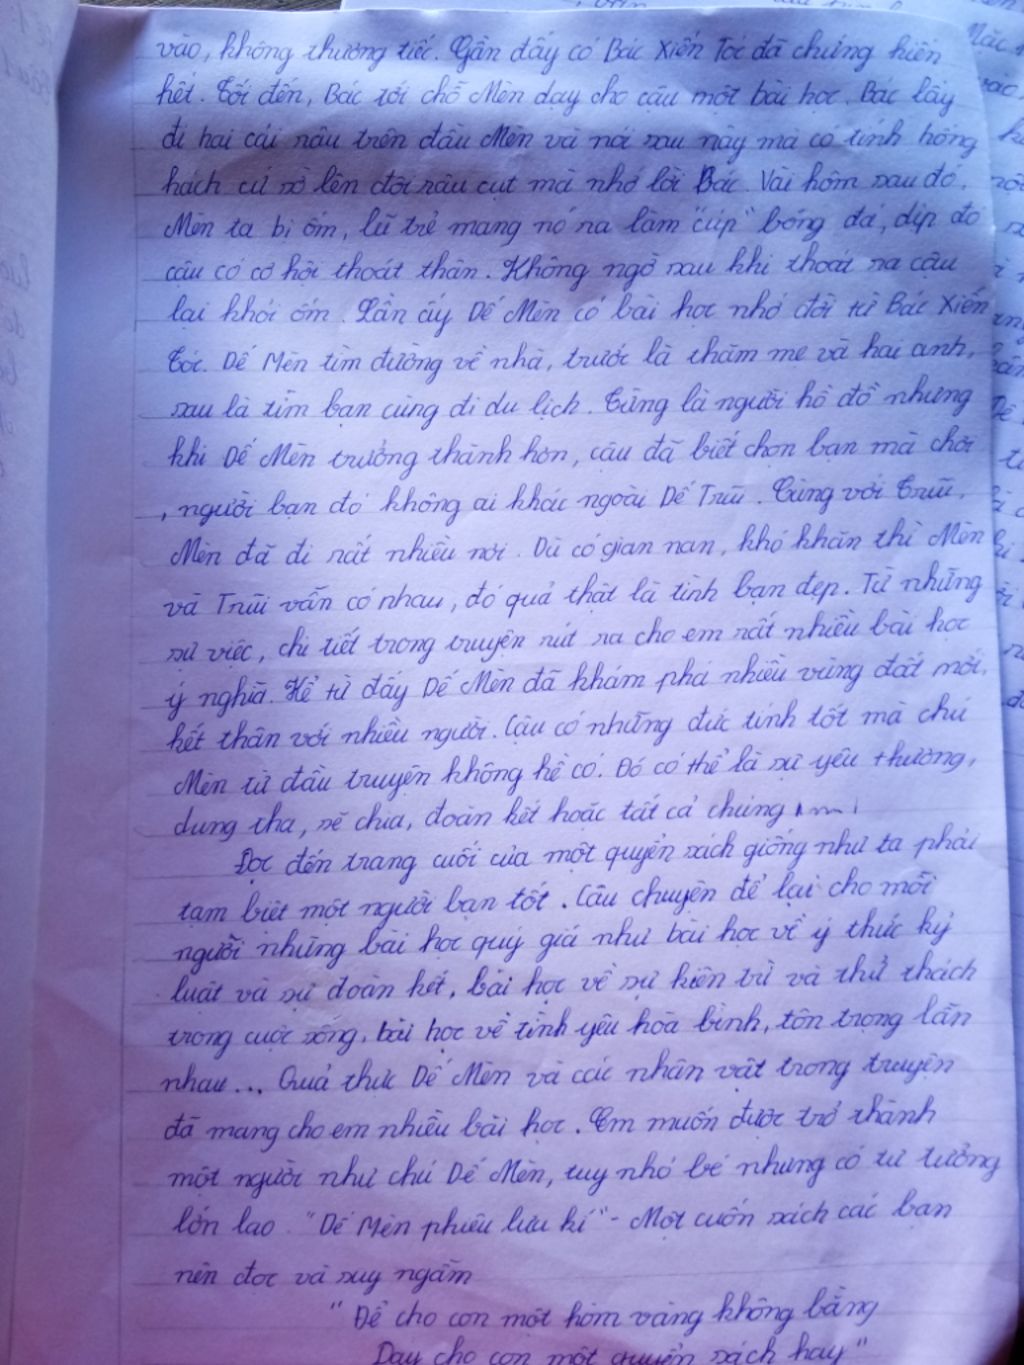 vào, không thương tiếc. Gần đấy có Bác Xiến Tóc đã chứng kiến
hết. Tối đến, Bác tới chỗ Mèn dạy cho cậu một bài học. Bác lấy
đi hai cái râu trên đầu Mèn và nói sau này mà có tính hống
hách cứ sờ lên đôi râu cụt mà nhớ lời Bác. Vài hôm sau đó,
Mèn ta bị ốm, lũ trẻ mang nó ra làm "cúp" bóng đá, dịp đó
cậu có cơ hội thoát thân. Không ngờ sau khi thoát ra cậu
lại khỏi ốm. Lần ấy Dế Mèn có bài học nhớ đời từ Bác Xiến
Tóc. Dế Mèn tìm đường về nhà, trước là thăm mẹ và hai anh,
sau là tìm bạn cùng đi du lịch. Từng là người hồ đồ nhưng
khi Dế Mèn trưởng thành hơn, cậu đã biết chọn bạn mà chơi
, người bạn đó không ai khác ngoài Dế Trũi. Cùng với Trũi,
Mèn đã đi rất nhiều nơi. Dù có gian nan, khó khăn thì Mèn
và Trũi vẫn có nhau, đó quả thật là tình bạn đẹp. Từ những
sự việc, chi tiết trong truyện rút ra cho em rất nhiều bài học
ý nghĩa. Kể từ đấy Dế Mèn đã khám phá nhiều vùng đất mới,
kết thân với nhiều người. Cậu có những đức tính tốt mà chú
Mèn từ đầu truyện không hề có. Đó có thể là sự yêu thương,
dung tha, sẻ chia, đoàn kết hoặc tất cả chúng
Đọc đến trang cuối của một quyển sách giống như ta phải
tạm biệt một người bạn tốt. Câu chuyện để lại cho mỗi
người những bài học quý giá như bài học về ý thức kỷ
luật và sự đoàn kết, bài học về sự kiên trì và thử thách
trong cuộc sống, bài học về tình yêu hòa bình, tôn trọng lẫn
nhau... Quả thực Dế Mèn và các nhân vật trong truyện
đã mang cho em nhiều bài học. Em muốn được trở thành
một người như chú Dế Mèn, tuy nhỏ bé nhưng có tư tưởng
lớn lao. "Dế Mèn phiêu lưu kí" - Một cuốn sách các bạn
nên đọc và suy ngẫm
"Để cho con một hòm vàng không bằng
Dạy cho con một quyển sách hay"